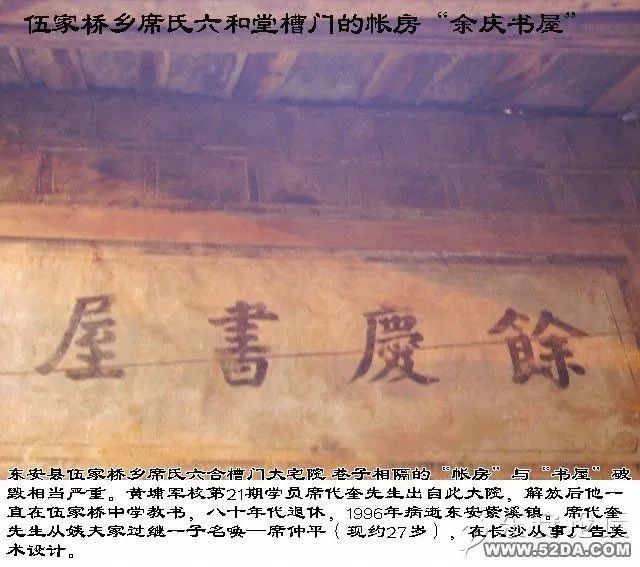 伍家桥乡席氏六和堂槽门的帐房“余庆书屋”
餘慶書屋
东安县伍家桥乡席氏六合槽门大宅院 巷子相隔的“帐房”与“书屋”破
毁相当严重。黄埔军校第21期学员席代奎先生出自此大院，解放后他一
直在伍家桥中学教书，八十年代退休，1996年病逝东安紫溪镇。席代奎
先生从姨夫家过继一子名唤—席仲平（现约27岁），在长沙从事广告美
术设计。
WWW.52DA.COM